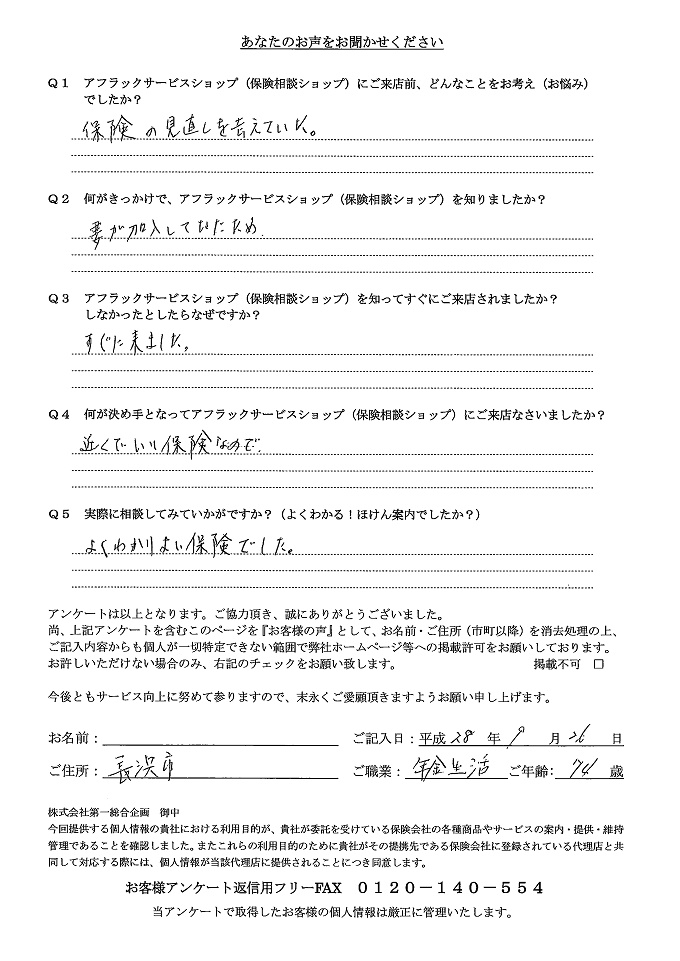 あなたのお声をお聞かせください
Q1 アフラックサービスショップ（保険相談ショップ）にご来店前、どんなことをお考え（お悩み）
でしたか？
保険の見直しを考えていた。
Q2 何がきっかけで、アフラックサービスショップ（保険相談ショップ）を知りましたか？
妻が加入してたため
Q3 アフラックサービスショップ（保険相談ショップ）を知ってすぐにご来店されましたか？
しなかったとしたらなぜですか？
すぐに来ました。
Q4 何が決め手となってアフラックサービスショップ（保険相談ショップ）にご来店なさいましたか？
近くでいい保険なので
Q5 実際に相談してみていかがですか？（よくわかる！ほけん案内でしたか？）
よくわかりよい保険でした。
アンケートは以上となります。ご協力頂き、誠にありがとうございました。
尚、上記アンケートを含むこのページを『お客様の声』として、お名前・ご住所（市町以降）を消去処理の上、
ご記入内容からも個人が一切特定できない範囲で弊社ホームページ等への掲載許可をお願いしております。
お許しいただけない場合のみ、右記のチェックをお願い致します。 掲載不可 □
今後ともサービス向上に努めて参りますので、末永くご愛顧頂きますようお願い申し上げます。
お名前： ご記入日：平成 28 年 9 月 26 日
ご住所： 長浜市 ご職業： 年金生活 ご年齢： 74 歳
株式会社第一総合企画 御中
今回提供する個人情報の貴社における利用目的が、貴社が委託を受けている保険会社の各種商品やサービスの案内・提供・維持
管理であることを確認しました。またこれらの利用目的のために貴社がその提携先である保険会社に登録されている代理店と共
同して対応する際には、個人情報が当該代理店に提供されることにつき同意します。
お客様アンケート返信用フリーFAX 0120－140－554
当アンケートで取得したお客様の個人情報は厳正に管理いたします。